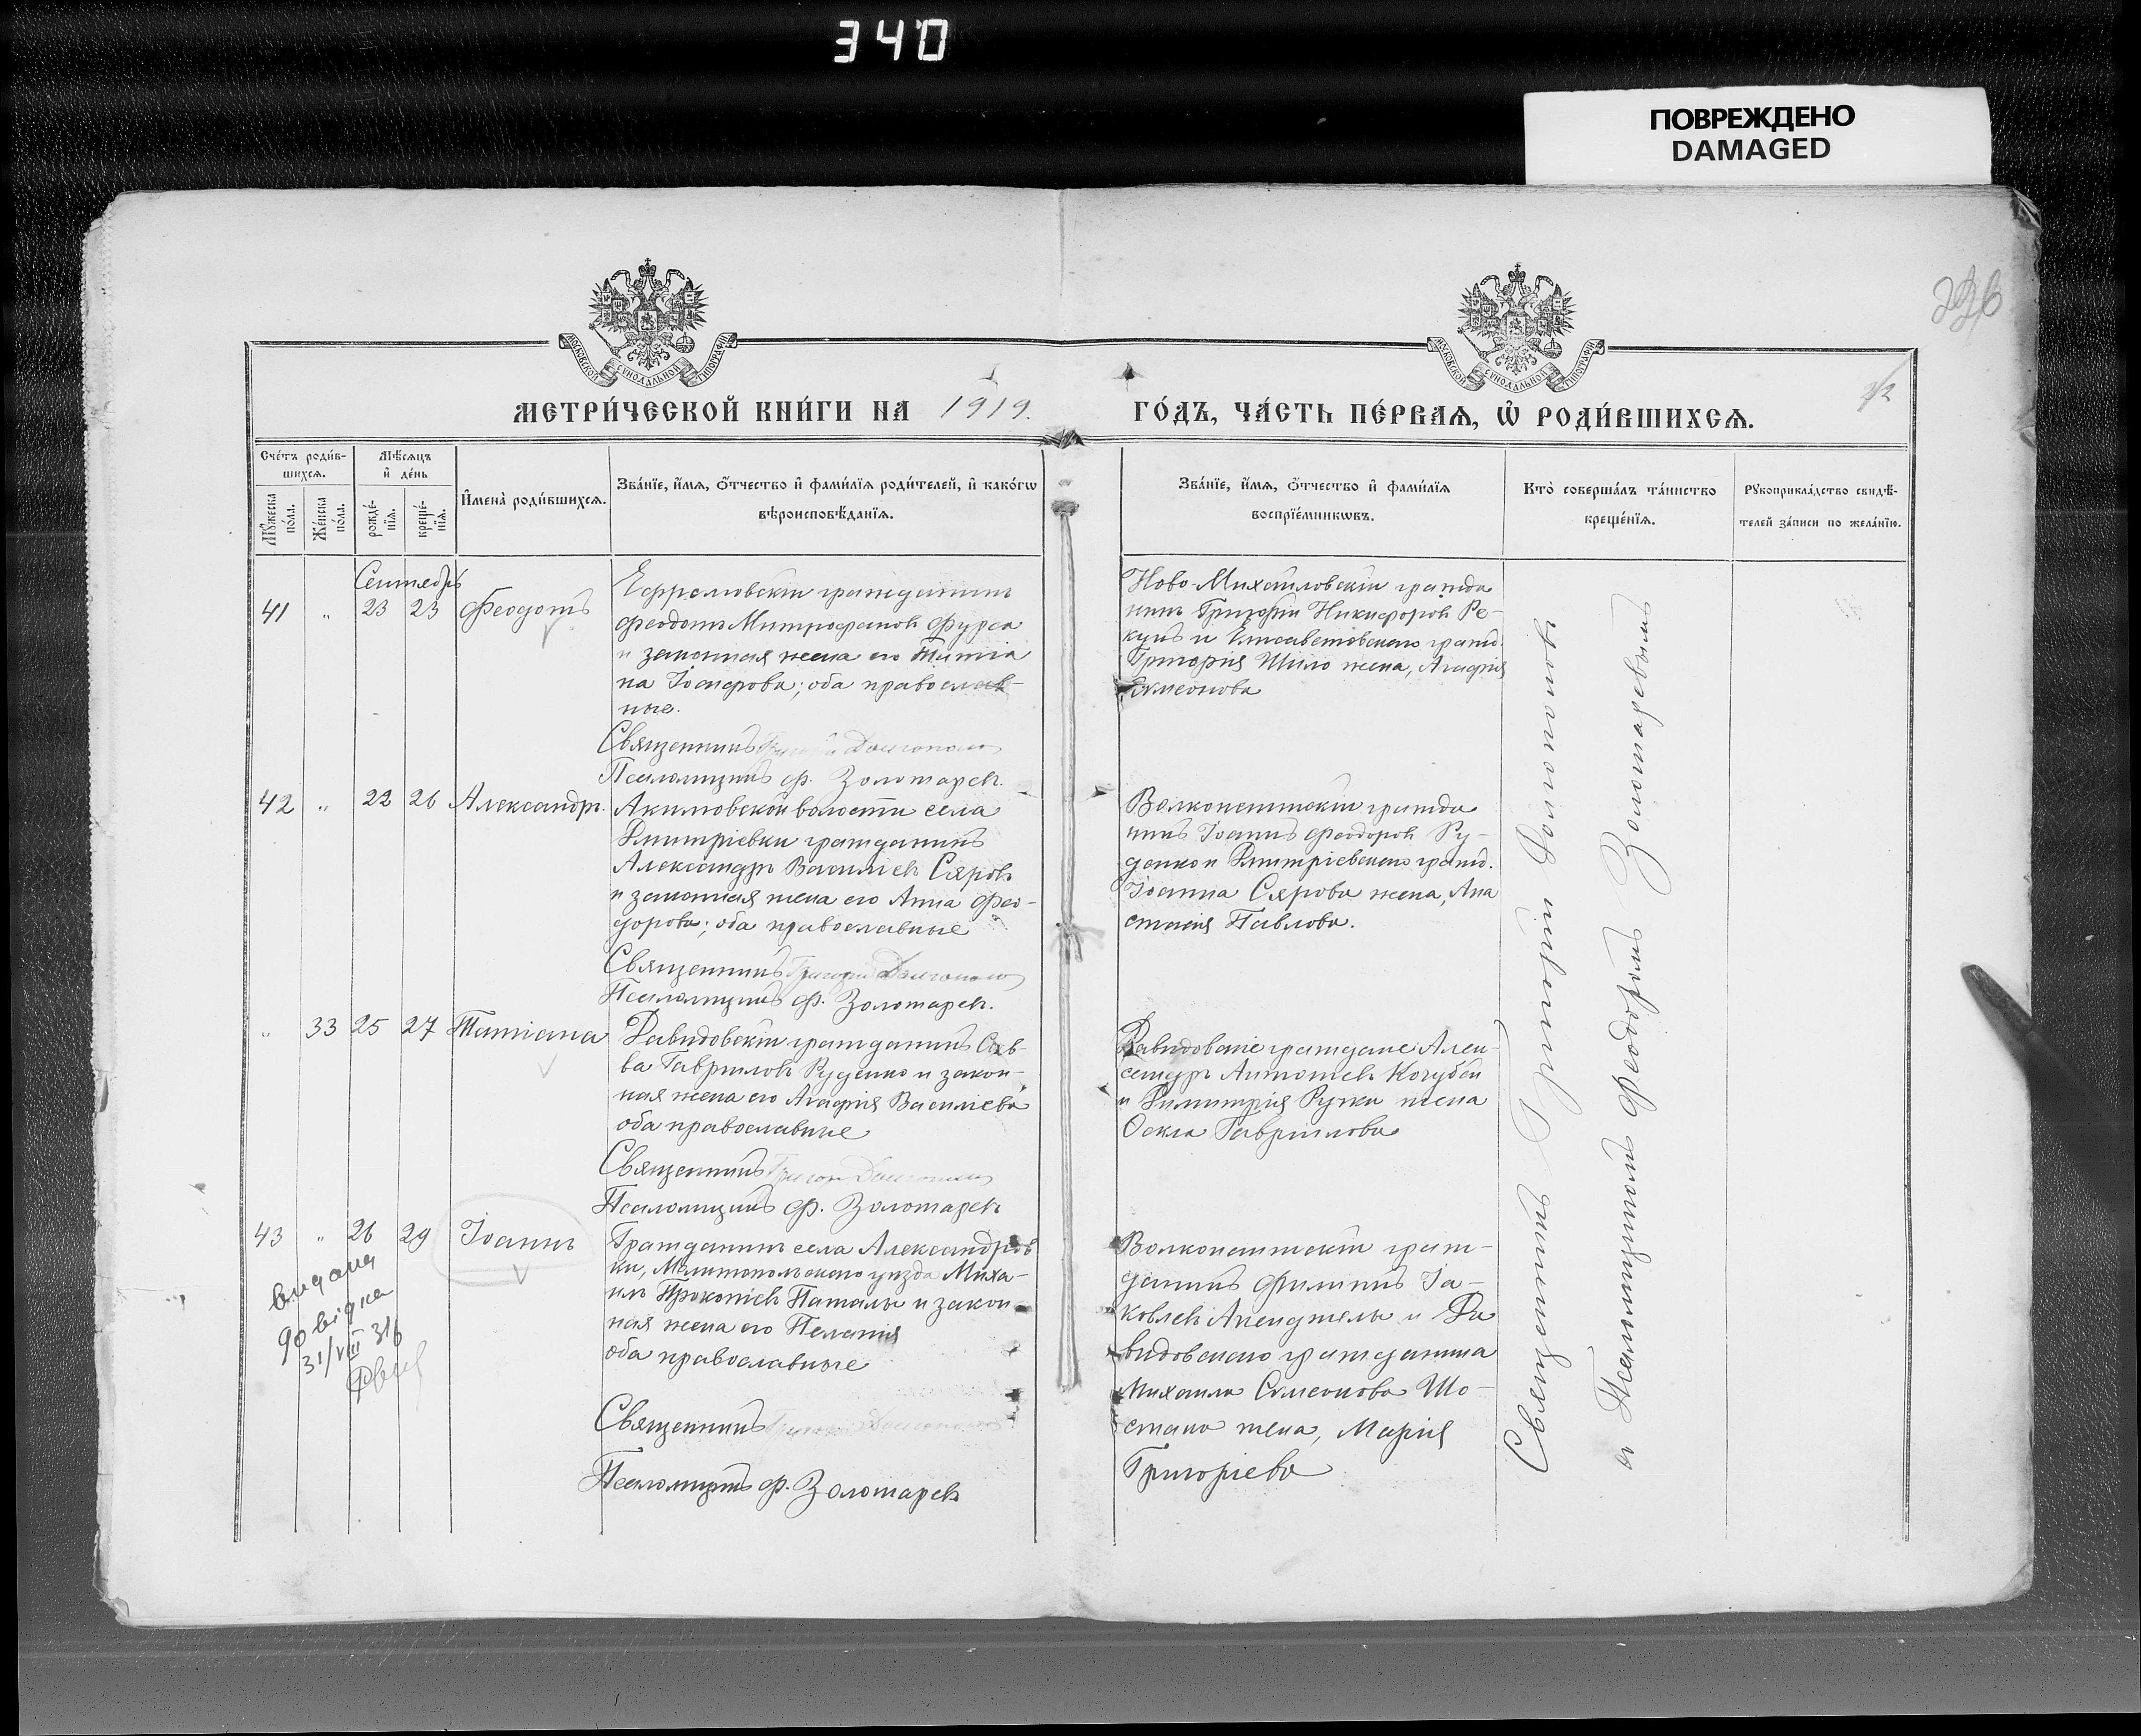 340
ПОВРЕЖДЕНО
DAMAGED
МОСКОВСКОЙ СѴНОДАЛЬНОЙ ТИПОГРАФІИ
МОСКОВСКОЙ СѴНОДАЛЬНОЙ ТИПОГРАФІИ
МЕТРИ́ЧЕСКОЙ КНИ́ГИ НА 1919. ГО́ДЪ, ЧА́СТЬ ПЕ́РВАЯ, Ѽ РОДИ́ВШИХСЯ.
Сче́тъ роди́в-
шихся.
Мѣ́сяцъ
и҆ де́нь
Мꙋ́жеска
по́ла.
Же́нска
по́ла.
рожде́-
нїя.
креще́-
нїя.
И҆мена̀ роди́вшихся.
Зва́нїе, и҆́мя, ѻ҆́тчество и҆ фами́лїя роди́телей, и҆ како́гѡ
вѣроисповѣ́данїя.
Зва́нїе, и҆́мя, ѻ҆́тчество и҆ фами́лїя
воспрїе́мникѡвъ.
Кто̀ соверша́лъ та́инство
креще́нїя.
Рꙋкоприкла́дство свидѣ́-
телей за́писи по жела́нїю.
Сентябрь
41 " 23 23 Феодотъ
Ефремовскій гражданинъ
Феодотъ Митрофановъ Фурса
и законная жена его Татiа
на Іосифова; оба православ-
ные.
Священникъ Григорій Долгополов
Псаломщикъ Ф. Золотаревъ.
Ново-Михайловскій гражда
нинъ Григорій Никифоровъ Ре-
кунъ и Елисаветовскаго гражд.
Григорія Шило жена, Агафія
Симеонова
42 " 22 26 Александръ.
Акимовской волости села
Димитріевки гражданинъ
Александръ Васильевъ Сяровъ
и законная жена его Анна Фео-
дорова; оба православные
Священникъ Григорій Долгополов
Псаломщикъ Ф. Золотаревъ.
Волконештскій гражда
нинъ Іоаннъ Феодоровъ Ру-
денко и Димитріевскаго гражд.
Іоанна Сярова жена, Ана
стасія Павлова.
" 33 25 27 Татiана
Давидовскій гражданинъ Сав-
ва Гавриловъ Руденко и закон-
ная жена его Агафія Василіева
оба православные
Священникъ Григорій Долгополов
Псаломщикъ Ф. Золотаревъ
Давидовскіе граждане Алек-
сандръ Антоніевъ Кочубей
и Димитрія Ружи жена
Фекла Гаврилова
43 " 26 29 Іоаннъ
Гражданинъ села Александров
ки, Мелитопольскаго уѣзда Миха-
илъ Прокопіевъ Паталы и закон-
ная жена его Пелагія
оба православные
Священникъ Григорій Долгополов
Псаломщикъ Ф. Золотаревъ
Волконештскій граж-
данинъ Филиппъ Іа-
ковлевъ и Да
видовскаго гражданина
Михаила Симеонова Шо-
стака жена, Марія
Григоріева
видана
довідка
31/VIII 31б
Священникъ Григорій Долгополов
и Псаломщикъ Феодоръ Золотаревъ